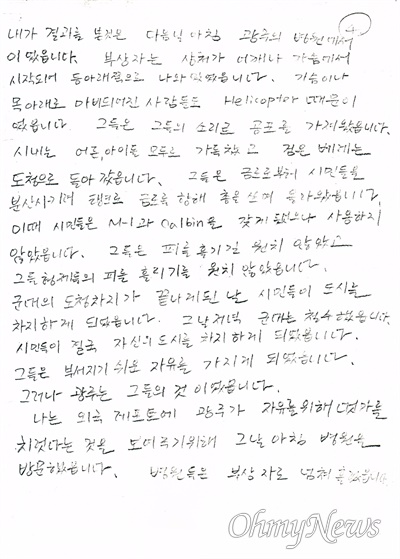 4
내가 결과를 본것은 다음날 아침 광주의 병원에서
이었읍니다. 부상자는 상처가 어깨나 가슴에서
시작되어 등아래쪽으로 나와 있었읍니다. 가슴이나
목아래로 마비되어진 사람들도 Helicoptor 때문이
었읍니다. 그들은 그들의 소리로 공포를 가져왔읍니다.
시내는 어른,아이들 모두로 가득찼고 검은 베레는
도청으로 돌아 갔읍니다. 그들은 금르로부터 시민들을
분산시키려 탱크로 금르를 향해 총을 쏘며 나왔읍니다.
이때 시민들은 M-1과 Calbin을 갖게 되었으나 사용하지
않았읍니다. 그들은 피를 흘기길 원치 않았고
그들 형제들의 피를 흘리기를 원치 않았읍니다.
군대의 도청차지가 끝나게된 날 시민들이 도시를
차지하게 되었읍니다. 그날저녁 군대는 철수했읍니다.
시민들이 결국 자신의 도시를 차지하게 되었읍니다.
그들은 부서지기 쉬운 자유를 가지게 되었읍니다.
그러나 광주는 그들의 것 이었읍니다.
나는 외국 레포트에 광주가 자유를 위해 댓가를
치렀다는 것을 보여주기위해 그날 아침 병원을
방문하였읍니다. 병원들은 부상자로 넘쳐 흘렀읍니다
OhmyNews